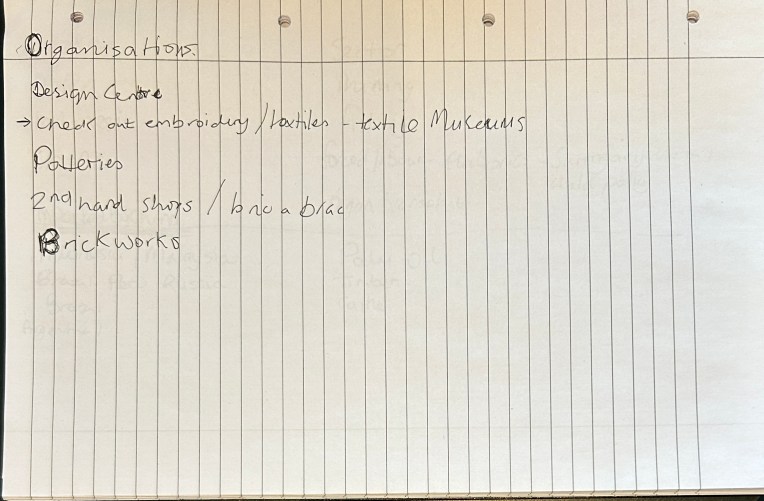 Organisations.
Design Centre
→ Check out embroidery / textiles - textile Museums
Potteries
2nd hand shops / bric a brac
Brickworks